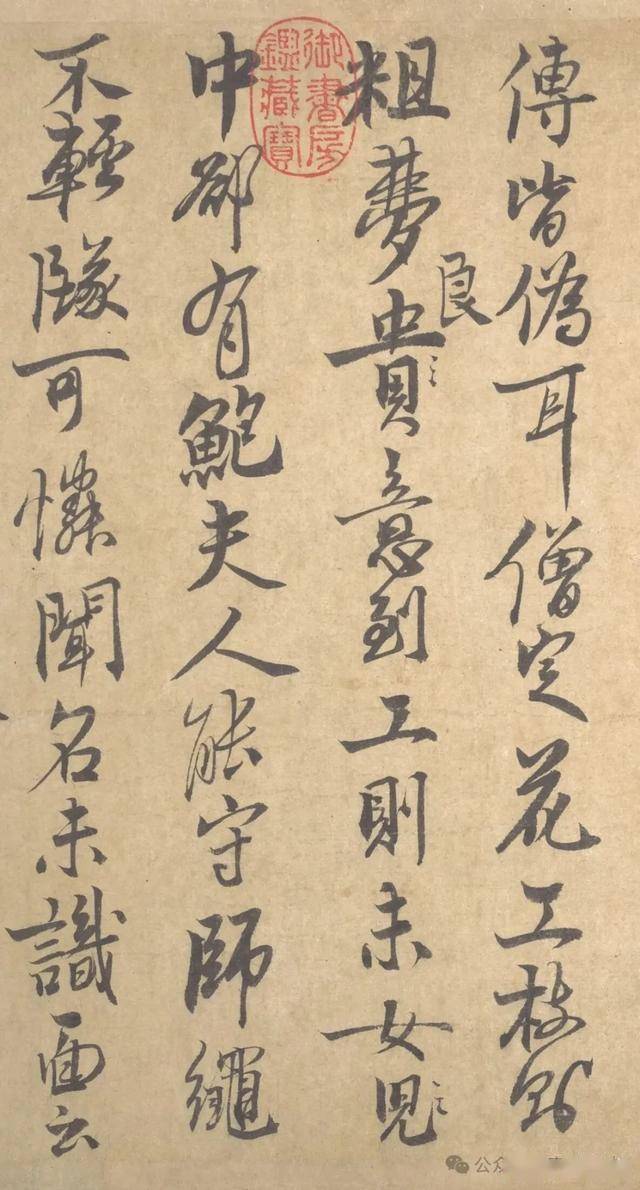 傳皆偽耳僧定花工枝則
粗夢貴意到工則未女兒
良
中卻有鮑夫人能守師繩
不輕隊可憐聞名未識面云
御書房鑑藏寶